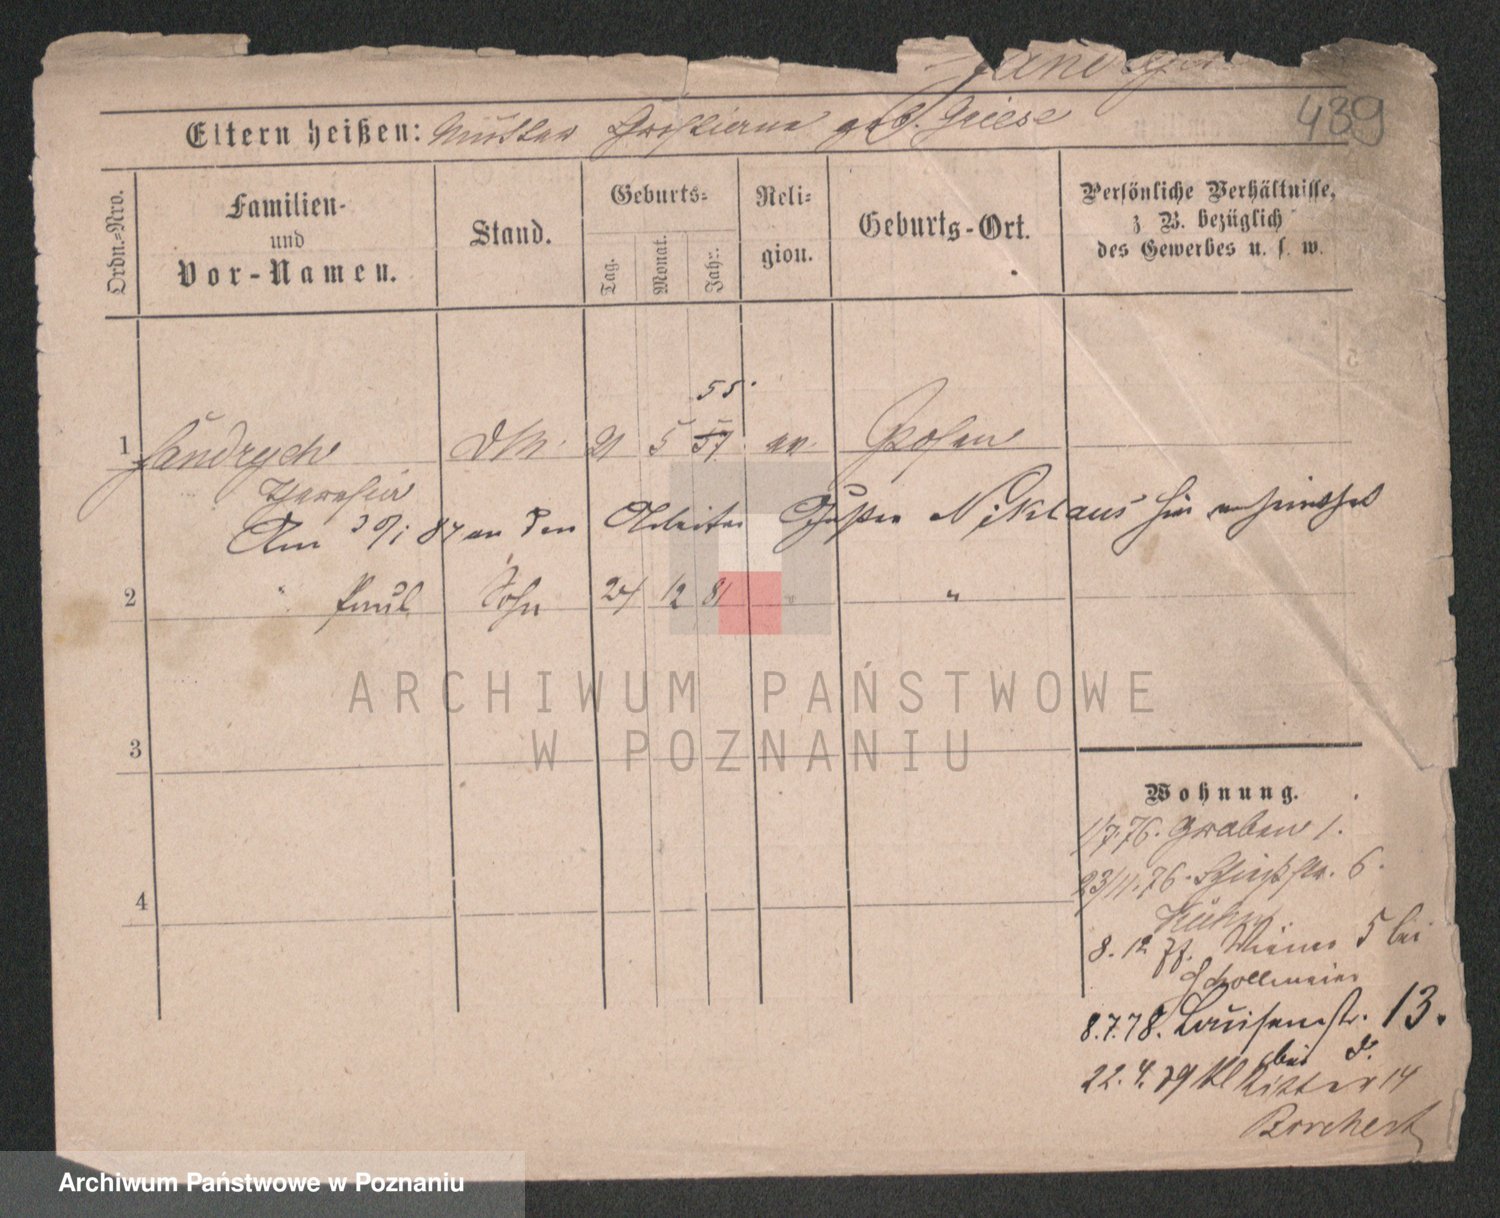 439
Eltern heißen: Mutter geb. Giese
Ordn.-Nro.
Familien-
und
Vor-Namen.
Stand.
Geburts-
Tag.
Monat.
Jahr.
Reli-
gion.
Geburts-Ort.
Persönliche Verhältnisse,
z B. bezüglich
des Gewerbes u. s. w.
55.
1 Jandrych DM. 21 5 57 ev. Posen
Theresia
Am 30/1 87 an den Arbeiter Niklaus hier verheirathet
2 " Paul Sohn 24 12 81 "
3
4
Wohnung.
1/7.76. Graben 1.
23/11.76. Schießstr. 6.
Kuhn
8. 12 77. Wiener 5 bei
Schollmeier
8.7.78. Louisenstr. 13.
bei
22. 4. 79 Kl Ritter 14
Borchert
ARCHIWUM PAŃSTWOWE
W POZNANIU
Archiwum Państwowe w Poznaniu